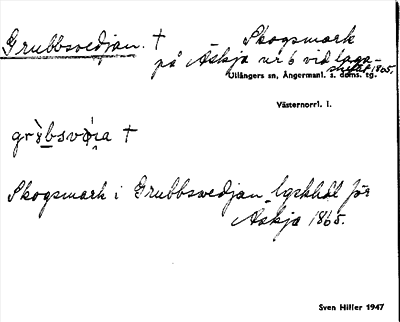 Grubbsvedjan. † Skogsmark
på Åskja nr 6 vid laga
skiftet 1805,
Ullångers sn, Ångermanl. s. doms. tg.
Västernorrl. l.
Skogsmark i Grubbsvedjan för
Åskja 1865.
Sven Hiller 1947